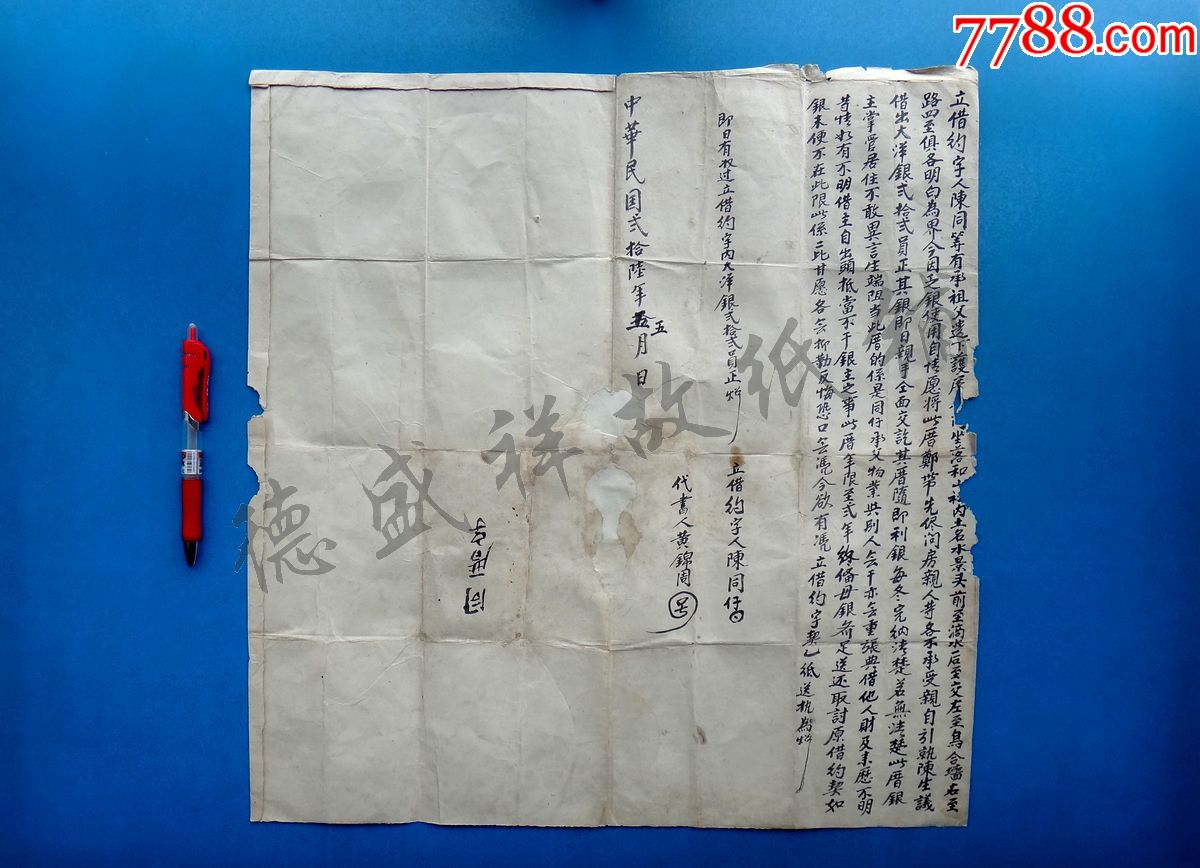 立借約字人陳同等有承祖父遺下護厝坐落和山社內土名水景头前至滴水后至交左至烏合墻右至
路四至俱各明白為界今因乏銀使用自情愿將此厝鄭帶先保问房親人等各不承受親自引就陳生議
借出大洋銀弍拾弍員正其銀即日親手仝面交訖其厝隨即利銀每冬完納清楚若無清楚此厝銀
主掌管居住不敢異言生端阻当此厝的係是同仔承父物業与別人無干亦無重張典借他人財及來歷不明
等情如有不明借主自出頭抵當不干銀主之事此厝年限至弍年終偹母銀齐足送还取討原借約契如
銀未便不在此限此係二比甘愿各無抑勒反悔恐口無凭今欲有凭立借約字契乙紙送执為炤
即日有收过立借約字內大洋銀弍拾弍員正炤
立借約字人陳同仔
代書人黃錦周
中華民国弍拾陸年五月 日
五
同厝字
德盛祥故纸
7788.com